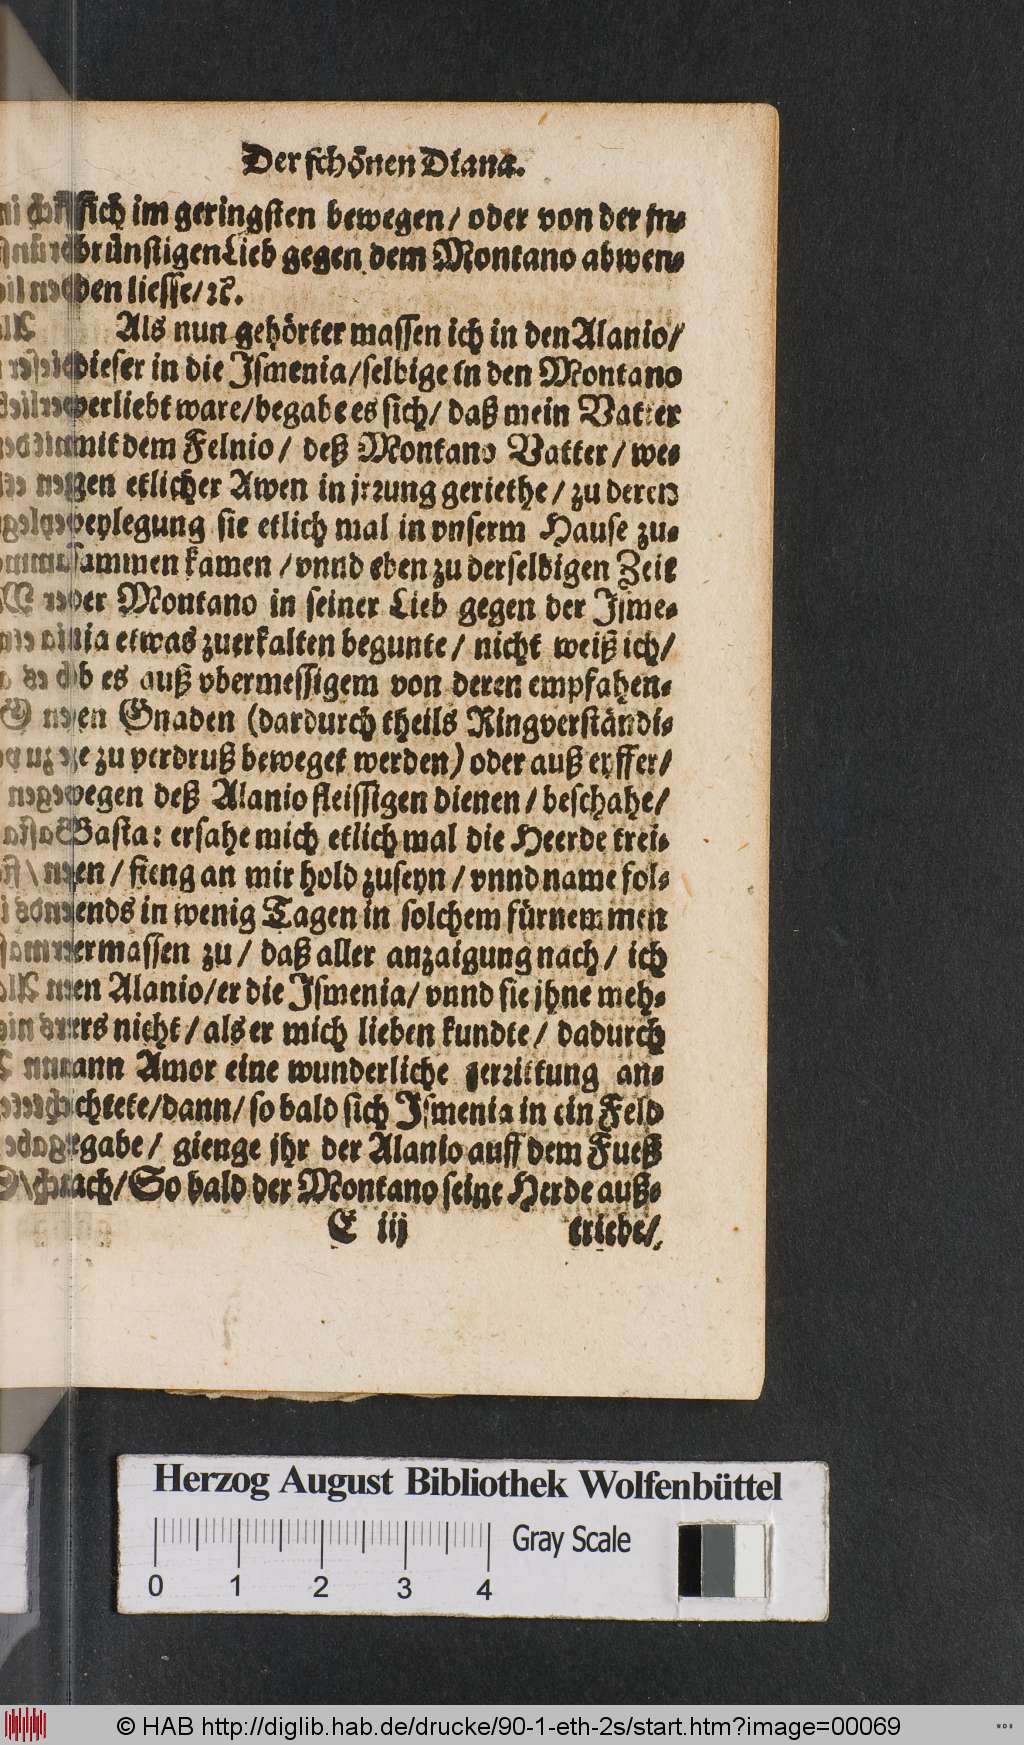 Der schönen Diana.
sich im geringsten bewegen/ oder von der in-
brünstigen Lieb gegen dem Montano abwen-
den liesse/ ꝛc.
Als nun gehörter massen ich in den Alanio/
dieser in die Ismenia/ selbige in den Montano
verliebt ware/ begabe es sich/ daß mein Vatter
mit dem Felnio/ deß Montano Vatter/ we-
gen etlicher Awen in jrrung geriethe/ zu deren
beylegung sie etlich mal in vnserm Hause zu-
sammen kamen/ vnnd eben zu derselbigen Zeit
der Montano in seiner Lieb gegen der Isme-
nia etwas zuerkalten begunte/ nicht weiß ich/
ob es auß vbermessigem von deren empfahen-
en Gnaden (dardurch theils Ringverständi-
ge zu verdruß beweget werden) oder auß eyffer/
wegen deß Alanio fleissigen dienen/ beschahe/
Basta: ersahe mich etlich mal die Heerde trei-
ben/ fieng an mir hold zuseyn/ vnnd name fol-
gends in wenig Tagen in solchem fürnemmen
dermassen zu/ daß aller anzaigung nach/ ich
den Alanio/ er die Ismenia/ vnnd sie jhne meh-
rers nicht/ als er mich lieben kundte/ dadurch
dann Amor eine wunderliche zerrittung an-
richtete/ dann/ so bald sich Ismenia in ein Feld
begabe/ gienge jhr der Alanio auff dem Fueß
nach/ So bald der Montano seine Herde auß-
E iij triebe/
Herzog August Bibliothek Wolfenbüttel
Gray Scale
0 1 2 3 4
© HAB http://diglib.hab.de/drucke/90-1-eth-2s/start.htm?image=00069